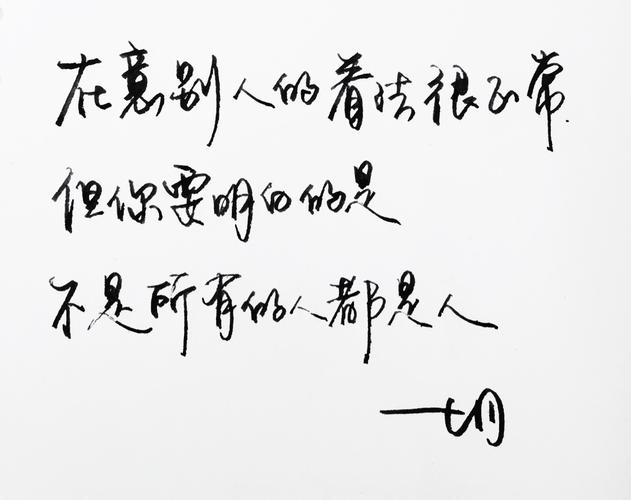 在意别人的看法很正常
但你要明白的是
不是所有的人都是人